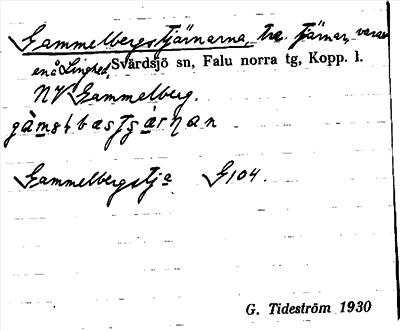 Gammelbergstjärnarna, tre tjärnar, varav
en å Linghed, Svärdsjö sn, Falu norra tg, Kopp. l.
NV Gammelberg.
Gammelbergstja G104.
G. Tideström 1930